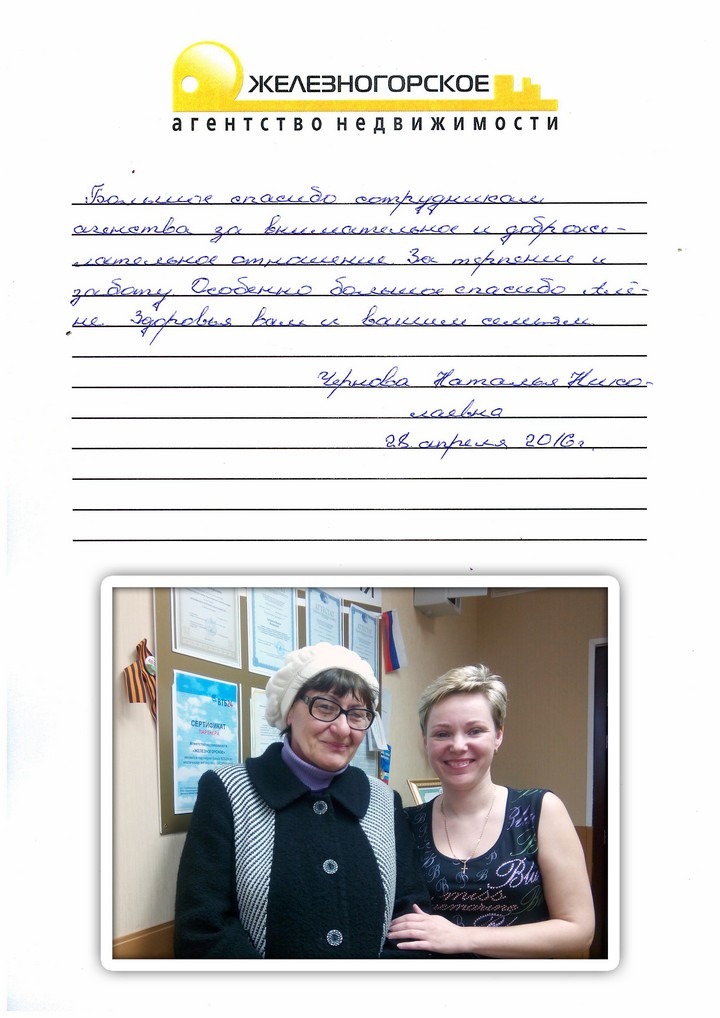 ЖЕЛЕЗНОГОРСКОЕ
агентство недвижимости
Большие спасибо сотрудникам
агенства за внимательное и доброже-
лательное отношение. За терпение и
заботу. Особенно большое спасибо Алё-
не. Здоровья Вам и вашим семьям.
Чернова Наталья Нико-
лаевна
28 апреля 2016г.
ВТБ24
СЕРТИФИКАТ
«ЖЕЛЕЗНОГОРСКОЕ»
Blu
miss